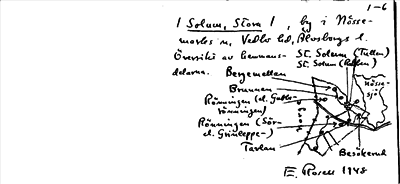 1-6
/ Solum, Stora /, by i Nösse-
marks sn, Vedbo hd, Älvsborgs l.
Översikt av hemmans-
delarna.
St. Solum (Tullen)
St. Solum
Bergemetten
Brunnen
Rönningen (el. Gubb-
rönningen)
Rönningen (Sör-
el.
Tarlan
Nösse-
sjö
E. Rosell 1948